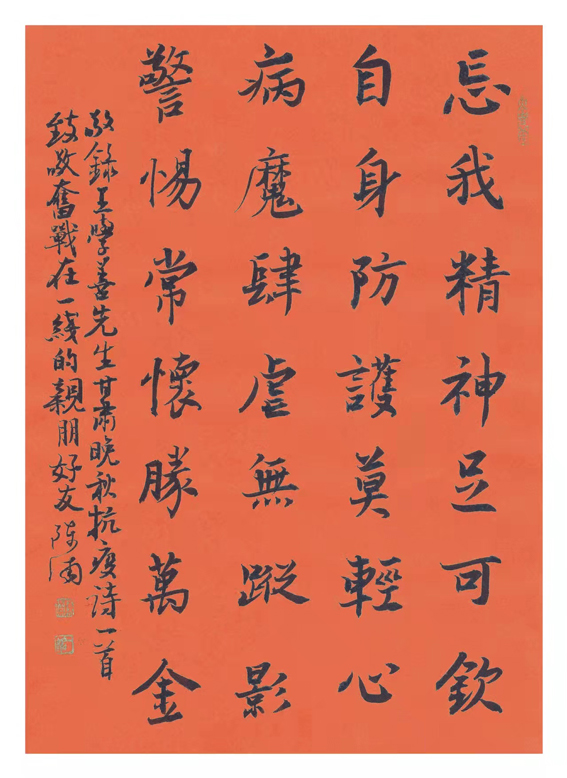 忘我精神足可欽
自身防護莫輕心
病魔肆虐無蹤影
警惕常懷勝萬金
敬錄王學善先生甘肅晚秋抗疫詩一首
致敬奮戰在一綫的親朋好友 陈涌